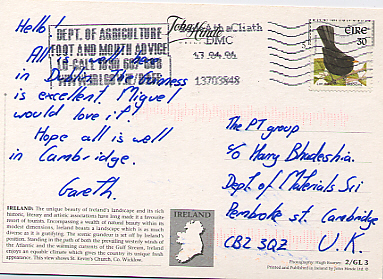 Hello!
All is well here
in Dublin. The Guinness
is excellent. Miguel
would love it!
Hope all is well
in Cambridge.
Gareth
DEPT. OF AGRICULTURE
FOOT AND MOUTH ADVICE
John Hinde
DMC
13703848
ÉIRE
30
The PT group
c/o Harry Bhadeshia.
Dept. of Materials Sci
Pembroke st. Cambridge
CB2 3QZ U.K.
IRELAND: The unique beauty of Ireland's landscape and its rich
historic, literary and artistic associations have long made it a favourite
resort of tourists. Encompassing a wealth of natural beauty within its
modest dimensions, Ireland boasts a landscape which is as much
diverse as it is gratifying. The scenic grandeur is set off by Ireland's
position. Standing in the path of both the prevailing westerly winds of
the Atlantic and the warming currents of the Gulf Stream, Ireland
enjoys an equable climate which gives the country its unique fresh
appearance. This view shows St. Kevin's Church, Co. Wicklow.
IRELAND
2/GL 3
Printed and Published in Ireland by John Hinde Ltd.